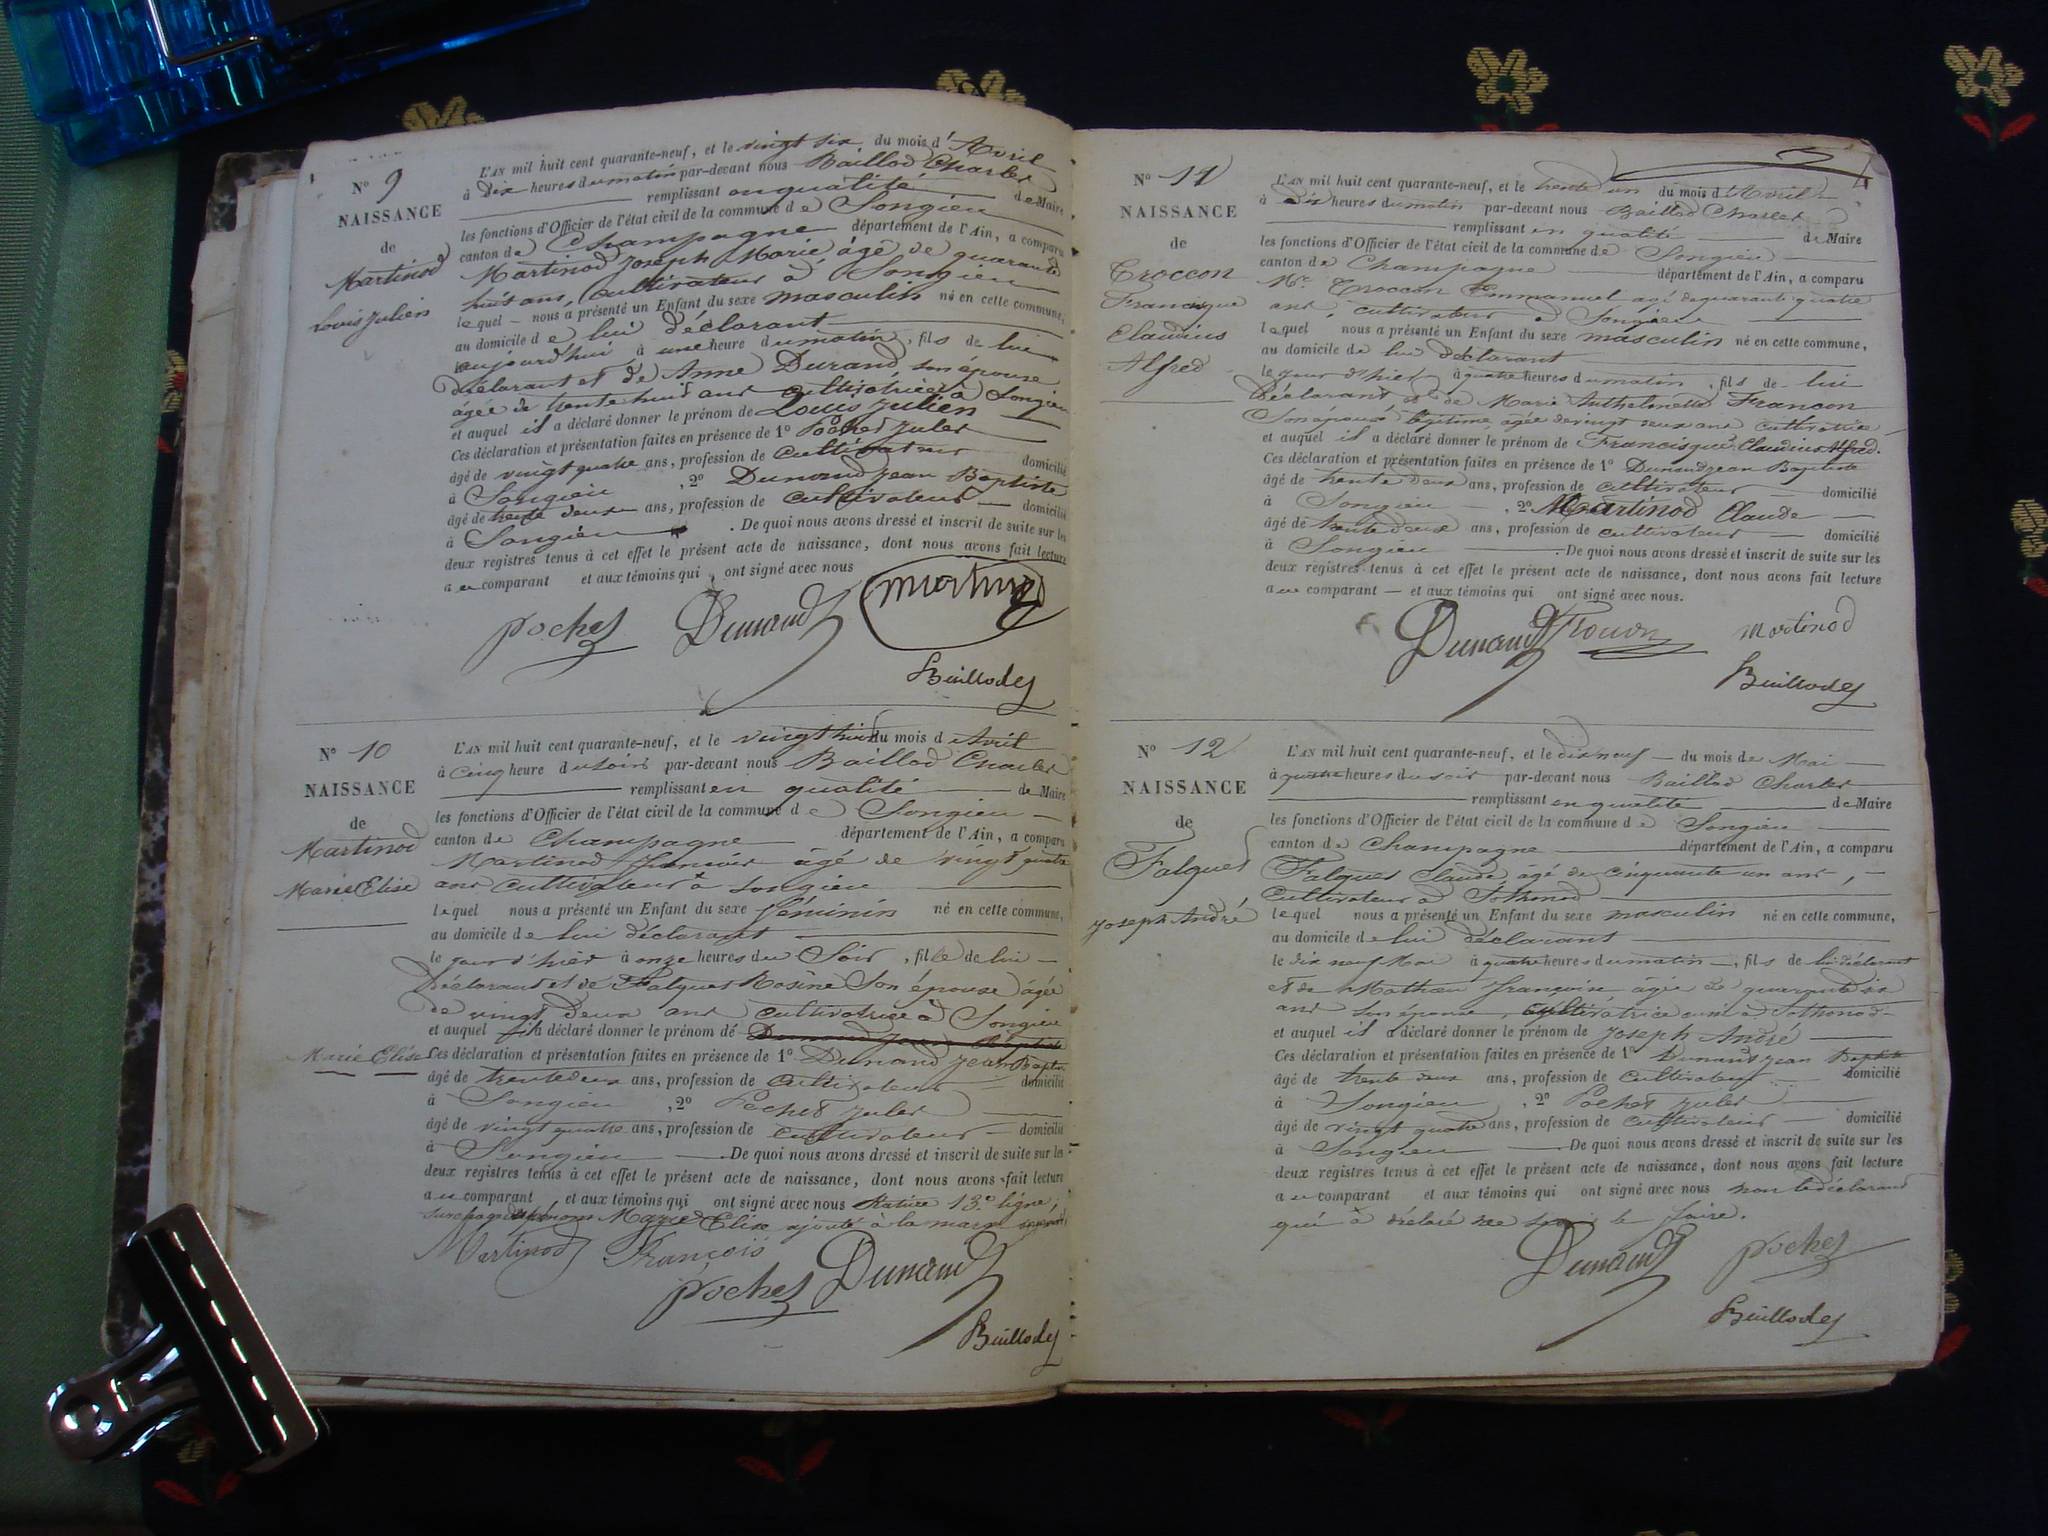 N° 9
NAISSANCE
de
Martinod
Louis Julien
L'AN mil huit cent quarante-neuf, et le vingt six du mois d'Avril
à Dix heures du matin par-devant nous Baillod Charles
remplissant en qualité de Maire
les fonctions d'Officier de l'état civil de la commune de Songieu
canton de Champagne département de l'Ain, a comparu
Martinod Joseph Marie âgé de quarante
huit ans, cultivateur à Songieu
lequel nous a présenté un Enfant du sexe masculin né en cette commune,
au domicile de lui déclarant
aujourd'hui à une heure du matin, fils de lui
déclarant et de Anne Durand son épouse
âgée de trente huit ans cultivatrice à Songieu
et auquel il a déclaré donner le prénom de Louis Julien
Ces déclaration et présentation faites en présence de 1° Pochet Jules
âgé de vingt quatre ans, profession de cultivateur domicilié
à Songieu , 2° Dunand Jean Baptiste
âgé de trente deux ans, profession de cultivateur domicilié
à Songieu . De quoi nous avons dressé et inscrit de suite sur les
deux registres tenus à cet effet le présent acte de naissance, dont nous avons fait lecture
au comparant et aux témoins qui ont signé avec nous
Pochet Dunand Martinod
Baillod
N° 10
NAISSANCE
de
Martinod
Marie Elise
L'AN mil huit cent quarante-neuf, et le vingt huit du mois d'Avril
à cinq heure du soir par-devant nous Baillod Charles
remplissant en qualité de Maire
les fonctions d'Officier de l'état civil de la commune de Songieu
canton de Champagne département de l'Ain, a comparu
Martinod François âgé de vingt quatre
ans cultivateur à Songieu
lequel nous a présenté un Enfant du sexe féminin né en cette commune,
au domicile de lui déclarant
le jour d'hier à onze heures du Soir, fille de lui
Déclarant et de Falques Rosine Son épouse âgée
de vingt deux ans cultivatrice à Songieu
et auquel il a déclaré donner le prénom de Dunand Jean Baptiste
Marie Elise
Ces déclaration et présentation faites en présence de 1° Dunand Jean Baptiste
âgé de trente deux ans, profession de cultivateur domicilié
à Songieu , 2° Pochet Jules
âgé de vingt quatre ans, profession de cultivateur domicilié
à Songieu De quoi nous avons dressé et inscrit de suite sur les
deux registres tenus à cet effet le présent acte de naissance, dont nous avons fait lecture
au comparant et aux témoins qui ont signé avec nous Rature 13e ligne,
Marie Elise ajouté à la marge
Martinod François
Pochet Dunand
Baillod
N° 11
NAISSANCE
de
Croccon
Francisque
Claudius
Alfred
L'AN mil huit cent quarante-neuf, et le trente un du mois d'Avril
à dix heures du matin par-devant nous Baillod Charles
remplissant en qualité de Maire
les fonctions d'Officier de l'état civil de la commune de Songieu
canton de Champagne département de l'Ain, a comparu
Mr Croccon Emmanuel agé de quarante quatre
ans, cultivateur à Songieu
lequel nous a présenté un Enfant du sexe masculin né en cette commune,
au domicile de lui déclarant
le jour d'hier à quatre heures du matin, fils de lui
Déclarant et de Marie Anthelmette Francon
Son épouse légitime, agée de vingt deux ans cultivatrice
et auquel il a déclaré donner le prénom de Francisque Claudius Alfred.
Ces déclaration et présentation faites en présence de 1° Dunand Jean Baptiste
âgé de trente deux ans, profession de cultivateur domicilié
à Songieu , 2° Martinod Claude
âgé de trente deux ans, profession de cultivateur domicilié
à Songieu De quoi nous avons dressé et inscrit de suite sur les
deux registres tenus à cet effet le présent acte de naissance, dont nous avons fait lecture
au comparant et aux témoins qui ont signé avec nous.
Dunand Martinod
Baillod
N° 12
NAISSANCE
de
Falques
Joseph André
L'AN mil huit cent quarante-neuf, et le dix neuf du mois de Mai
à quatre heures du soir par-devant nous Baillod Charles
remplissant en qualité de Maire
les fonctions d'Officier de l'état civil de la commune de Songieu
canton de Champagne département de l'Ain, a comparu
Falques Claude âgé de cinquante un ans,
Cultivateur à Sothonod
lequel nous a présenté un Enfant du sexe masculin né en cette commune,
au domicile de lui déclarant
le dix neuf Mai à quatre heures du matin, fils de lui déclarant
et de Mathieu Françoise âgée de quarante six
ans son épouse, cultivatrice aussi à Sothonod
et auquel il a déclaré donner le prénom de Joseph André
Ces déclaration et présentation faites en présence de 1° Dunand Jean Baptiste
âgé de trente deux ans, profession de cultivateur domicilié
à Songieu , 2° Pochet Jules
âgé de vingt quatre ans, profession de cultivateur domicilié
à Songieu De quoi nous avons dressé et inscrit de suite sur les
deux registres tenus à cet effet le présent acte de naissance, dont nous avons fait lecture
au comparant et aux témoins qui ont signé avec nous non le déclarant
qui a déclaré ne savoir le faire.
Dunand Pochet
Baillod